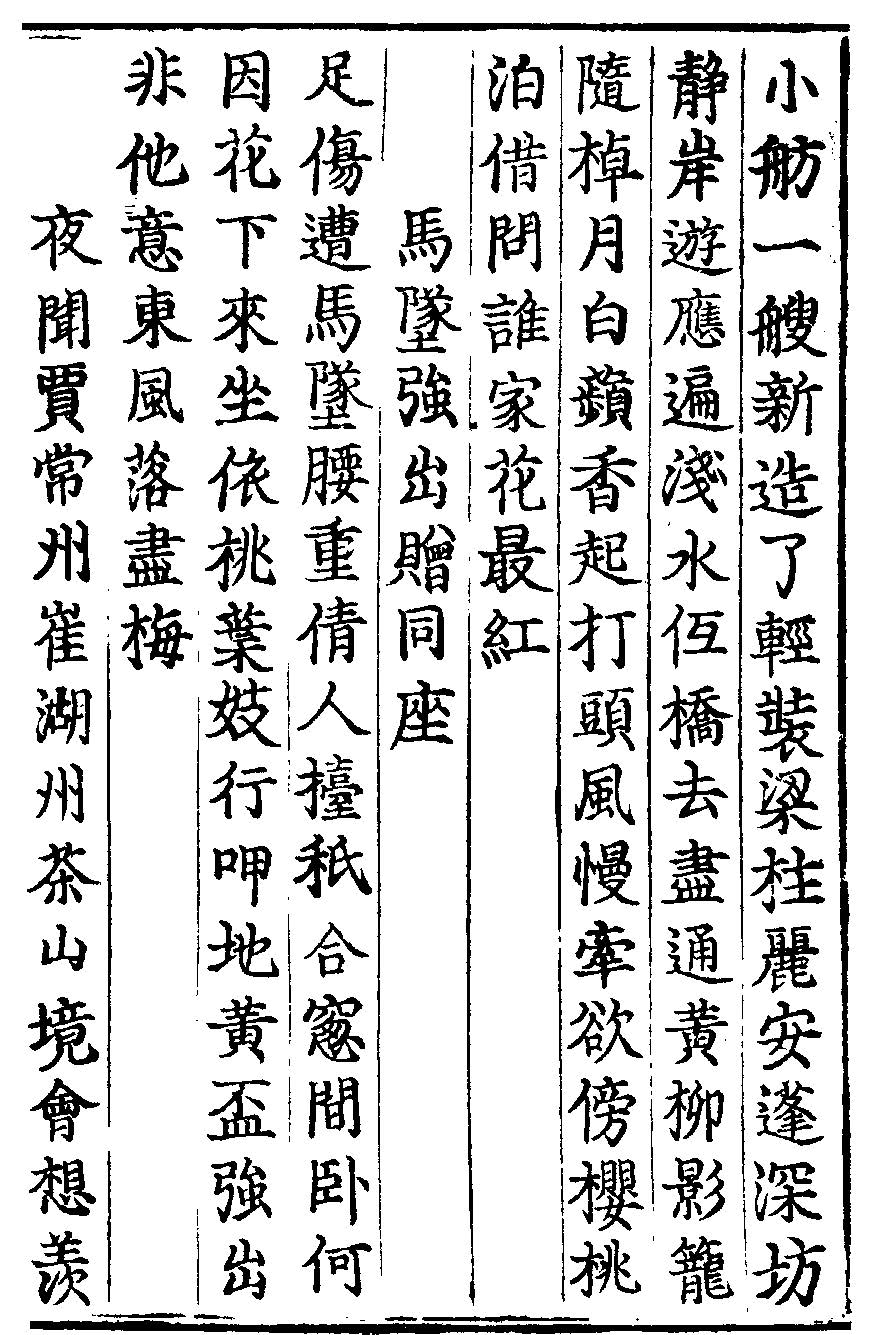 小舫一艘新造了輕裝梁柱麗安蓬深坊
静岸遊應遍淺水仾橋去盡通黃柳影籠
隨棹月白蘋香起打頭風慢牽欲傍櫻桃
泊借問誰家花最紅
馬墜強出贈同座
足傷遭馬墜腰重倩人擡秖合窻間卧何
因花下來坐依桃葉妓行呷地黃盃強出
非他意東風落盡梅
夜聞賈常州崔湖州茶山境會想羨